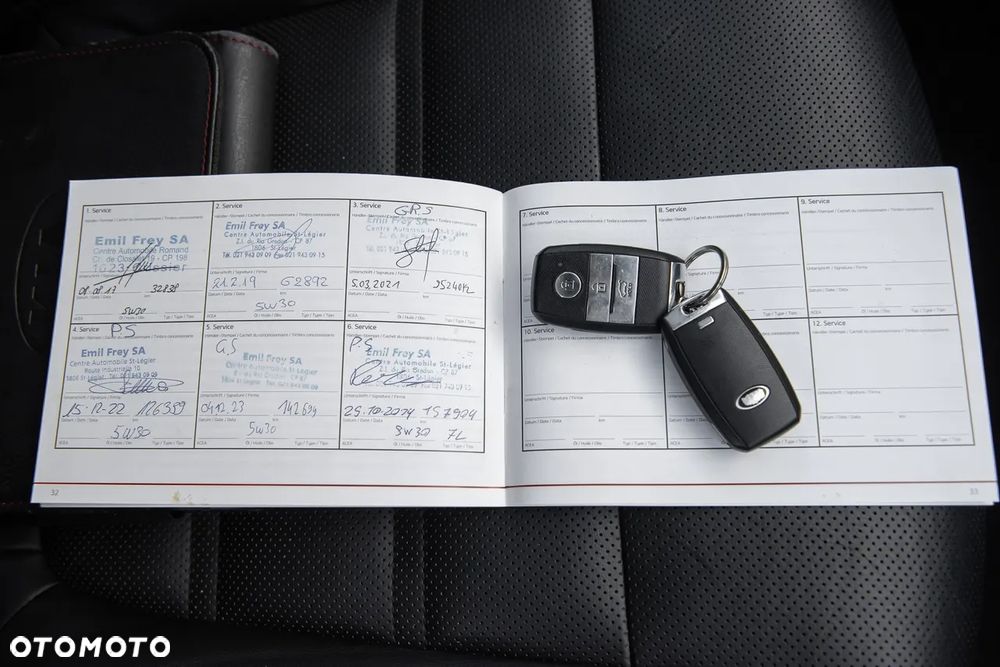 1. Service
Händler-Stempel / Cachet du concessionnaire / Timbro concessionario
Emil Frey SA
Centre Automobile Romand
1023 Crissier
08.08.17 32838
Datum / Date / Data km
5W30
ACEA Öl / Huile / Olio Typ / Type / Tipo
2. Service
Händler-Stempel / Cachet du concessionnaire / Timbro concessionario
Emil Frey SA
Centre Automobile St-Légier
1806 St-Légier
Tél. 021 943 09 09 021 943 09 15
Unterschrift / Signature / Firma
21.2.19 62892
Datum / Date / Data km
5W30
ACEA Öl / Huile / Olio Typ / Type / Tipo
3. Service
GRS
Händler-Stempel / Cachet du concessionnaire / Timbro concessionario
Emil Frey SA
Centre Automobile St-Légier
Unterschrift / Signature / Firma
5.03.2021
Datum / Date / Data km
ACEA Öl / Huile / Olio Typ / Type / Tipo
4. Service
P.S
Händler-Stempel / Cachet du concessionnaire / Timbro concessionario
Emil Frey SA
Centre Automobile St-Légier
Route Industrielle 10
1806 St-Légier Tél. 021 943 09 09
Unterschrift / Signature / Firma
15.12.22 126389
Datum / Date / Data km
5W30
ACEA Öl / Huile / Olio Typ / Type / Tipo
5. Service
G.S
Händler-Stempel / Cachet du concessionnaire / Timbro concessionario
Emil Frey SA
Centre Automobile St-Légier
Unterschrift / Signature / Firma
04.12.23 142694
Datum / Date / Data km
5W30
ACEA Öl / Huile / Olio Typ / Type / Tipo
6. Service
P.S
Händler-Stempel / Cachet du concessionnaire / Timbro concessionario
Emil Frey SA
Centre Automobile St-Légier
Unterschrift / Signature / Firma
29.10.2024 157924
Datum / Date / Data km
5W30 7L
ACEA Öl / Huile / Olio Typ / Type / Tipo
32
7. Service
Händler-Stempel / Cachet du concessionnaire / Timbro concessionario
8. Service
Händler-Stempel / Cachet du concessionnaire / Timbro concessionario
9. Service
Händler-Stempel / Cachet du concessionnaire / Timbro concessionario
10. Service
Unterschrift / Signature / Firma
Datum / Date / Data km
ACEA Öl / Huile / Olio Typ / Type / Tipo
12. Service
Händler-Stempel / Cachet du concessionnaire / Timbro concessionario
Unterschrift / Signature / Firma
Datum / Date / Data km
ACEA Öl / Huile / Olio Typ / Type / Tipo
33
KIA
OTOMOTO